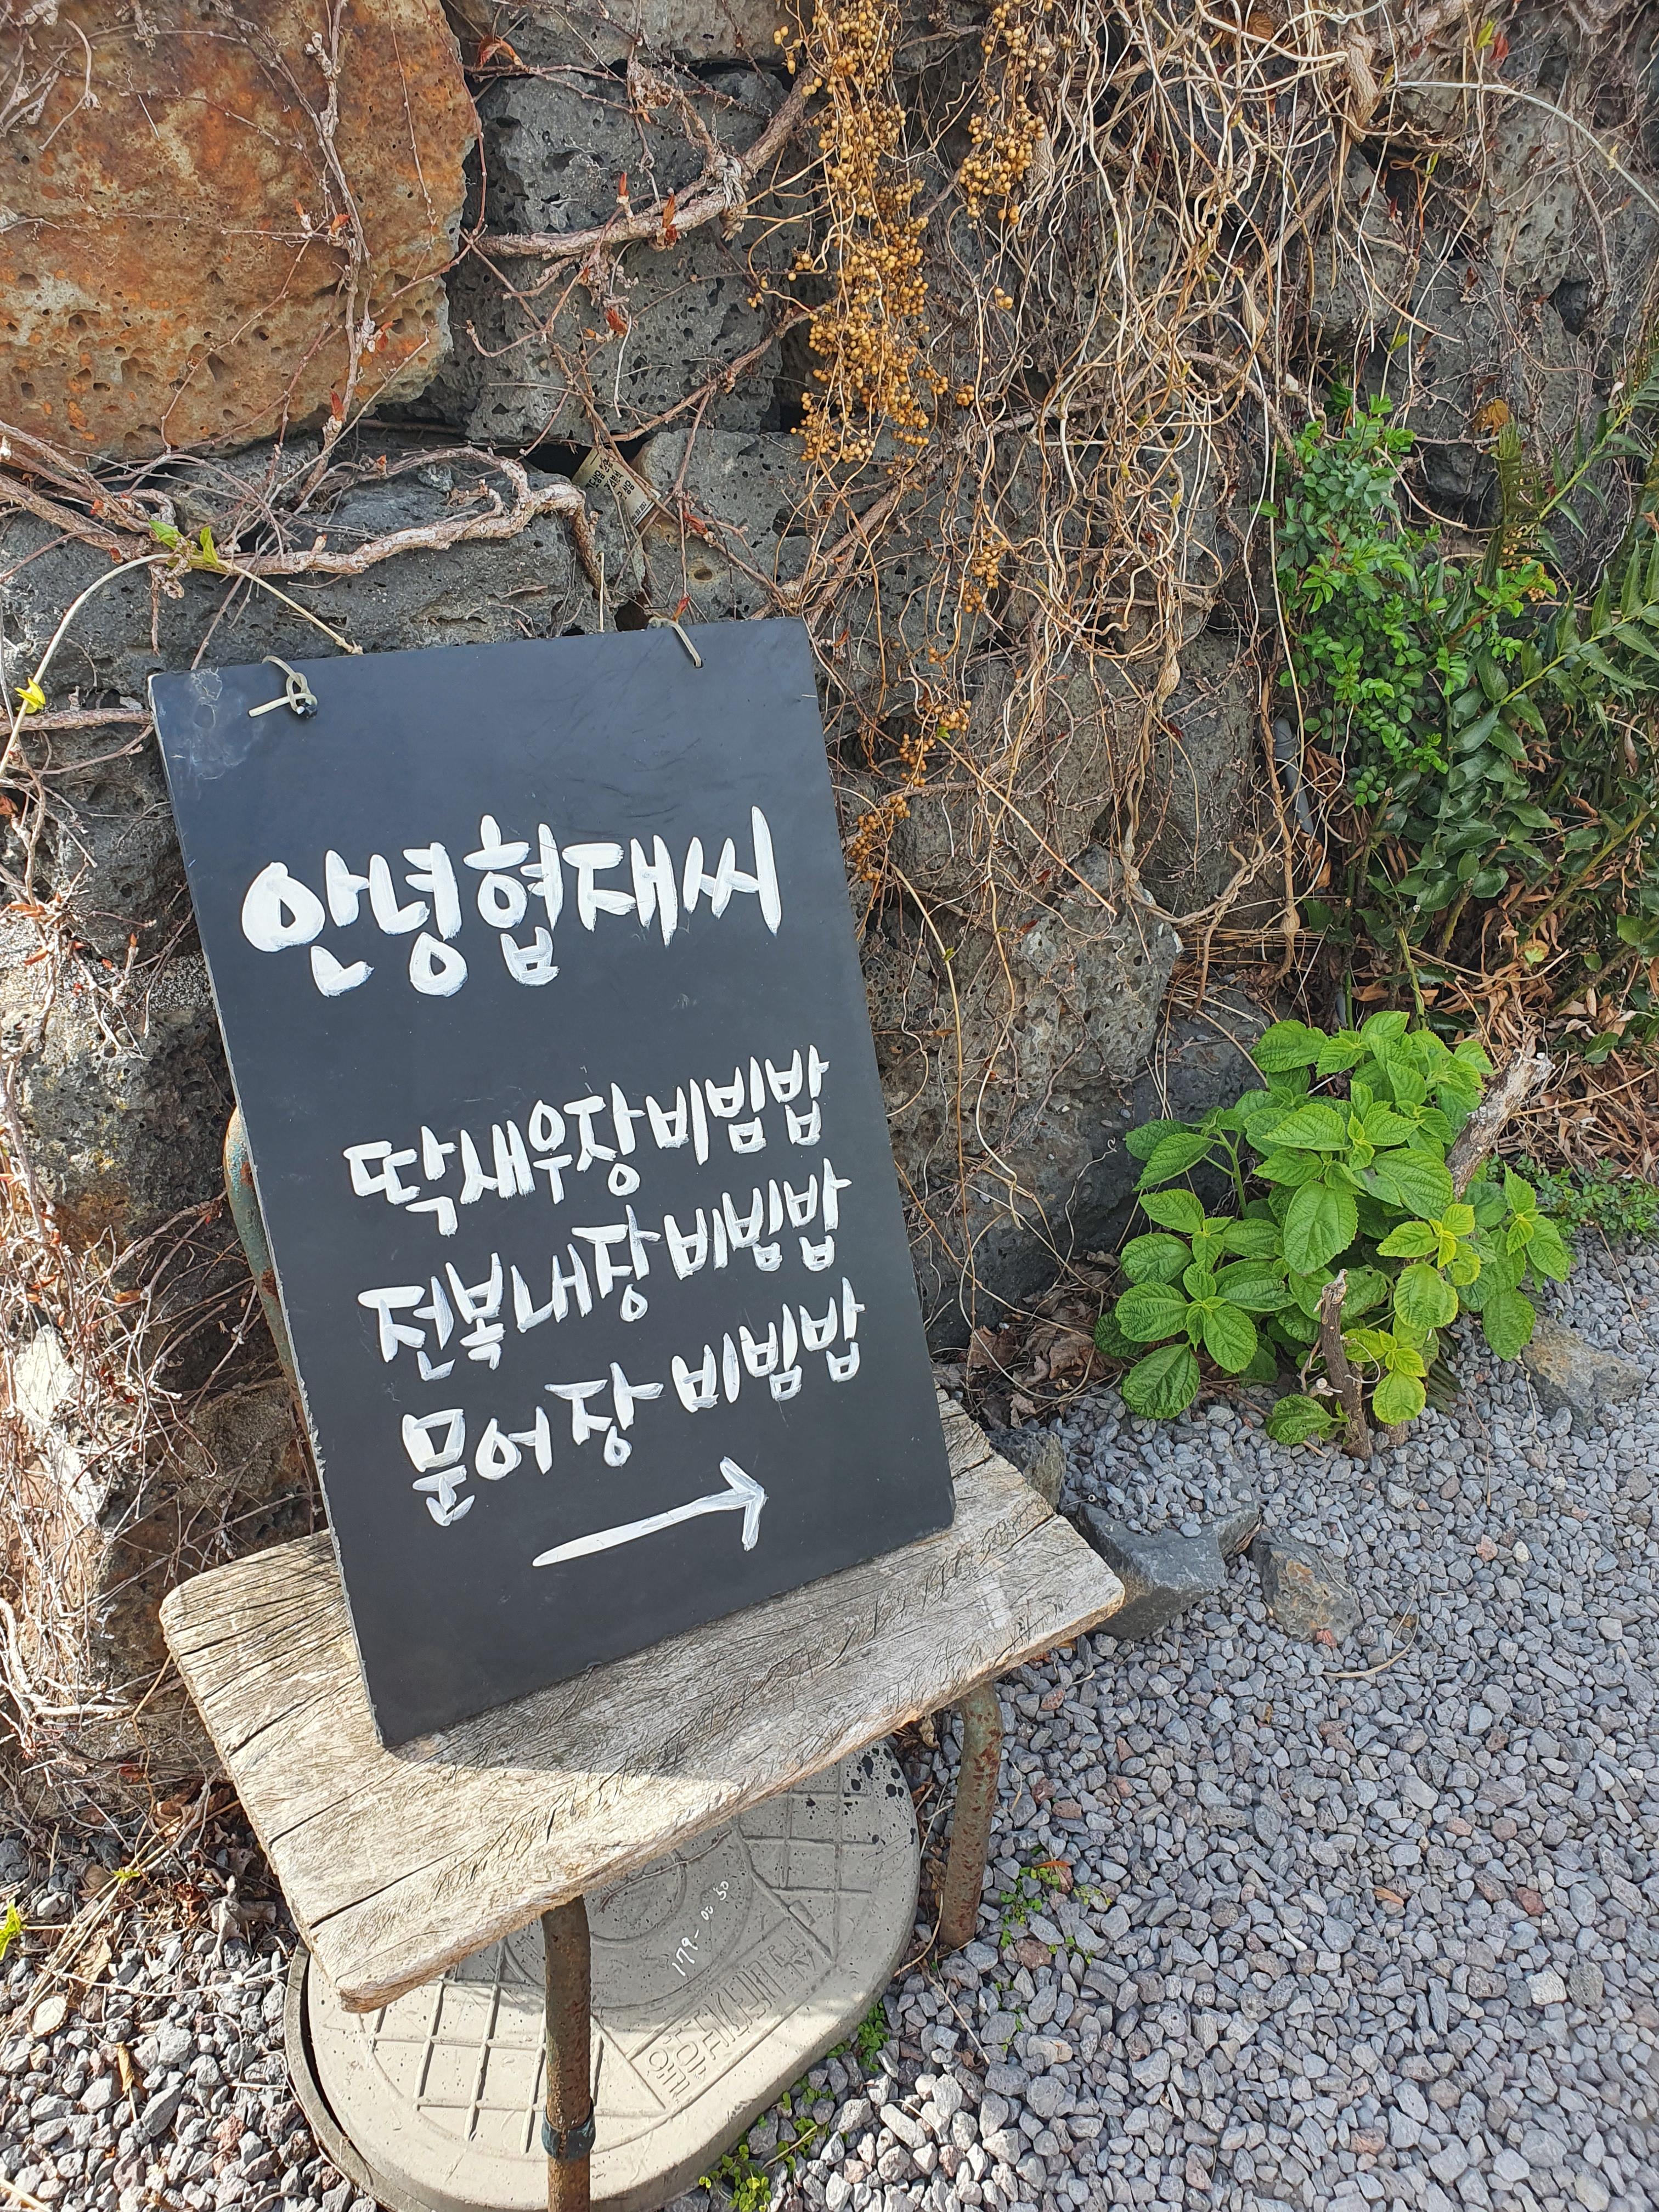 안녕협재씨
딱새우장비빔밥
전복내장 비빔밥
문어장 비빔밥
179-0050